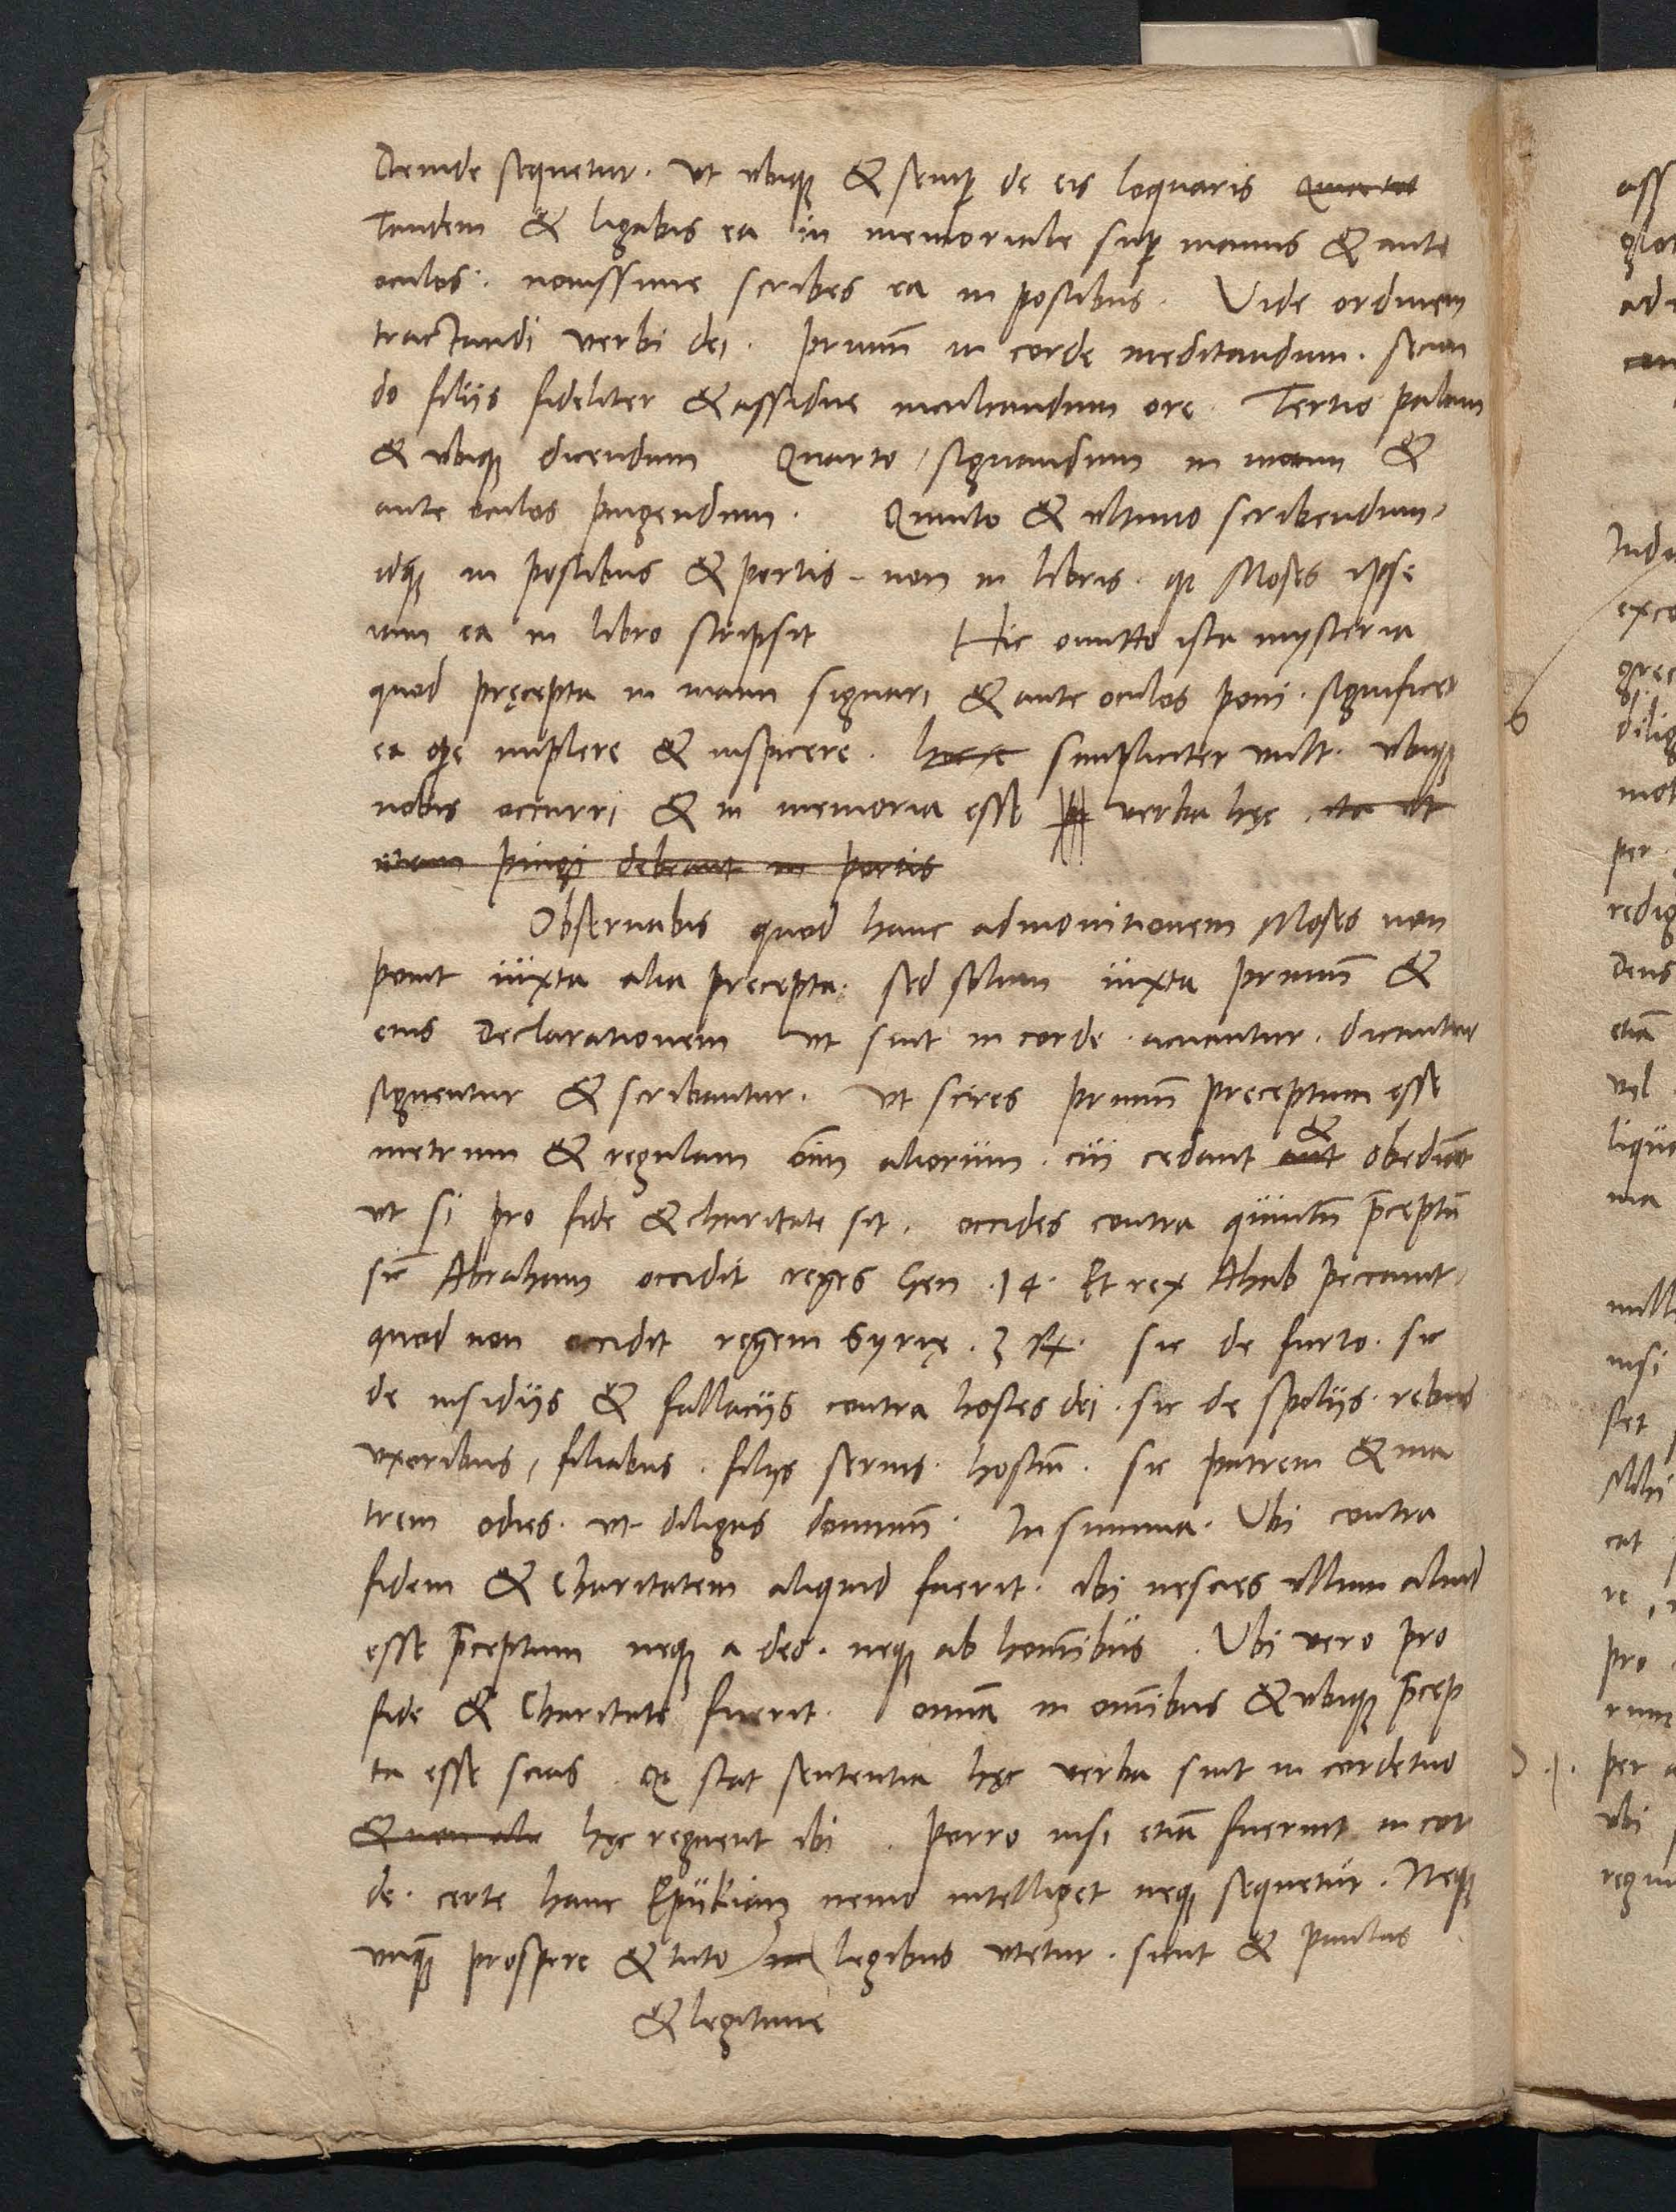 Deinde sequetur. ut ubiq; & semp de eis loquaris
Tandem & ligabis ea in memoriale sup manus & ante
oculos. nouissime scribes ea in postibus. Vide ordinem
tractandi verbi dei. primū in corde meditandum. secun
do filiis fideliter & assidue inculcandum ore. Tertio palam
& ubiq; dicendum Quarto / signandum in manu &
ante oculos pingendum. Quinto & ultimo scribendum,
idq; in postibus & portis - non in libris. q Moses ipse
iam ea in libro scripsit Hic omitto ista mysteria
quod pręcepta in manu signari & ante oculos poni. significet
ea ope implere & inspicere. simpliciter vult. ubiq;
nobis occurri & in memoria esse verba hęc. ita ut
etiam pingi debeant in portis
Obseruabis quod hanc admonitionem Moses non
ponit iuxta alia precepta. sed solum iuxta primū &
eius declarationem ut sint in corde. acuantur. dicantur
signentur & scribantur. ut scires primū preceptum esse
metrum & regulam oīm aliorum. cui cedant & obediant
ut si pro fide & charitate sit. occides contra quintū p̄ceptū
sic Abraham occidit reges Gen .14. Et rex Ahab peccauit,
quod non occidit regem Syrię. 3 R. sic de furto. sic
de insidijs & fallacijs contra hostes dei. sic de spolijs. rebus
uxoribus, filiabus. filijs seruis. hostiū. sic patrem & ma
trem odies. ut diligas dominū. In summa. Ubi contra
fidem & Charitatem aliquid fuerit. ibi nescies ullum aliud
esse p̄ceptum neq; a deo. neq; ab hominibus. Ubi vero pro
fide & Charitate fuerit. omnia in omnibus & ubiq; p̄cep
ta esse scias. q stat sententia hęc verba sint in corde tuo
& non alia hęc regnent ibi. Porro nisi etiā fuerint in cor
de. certe hanc Epiikian nemo intelliget neq; sequetur. Neq;
unq̄ prospere & tuto legibus utetur. sicut & Paulus
& legitime